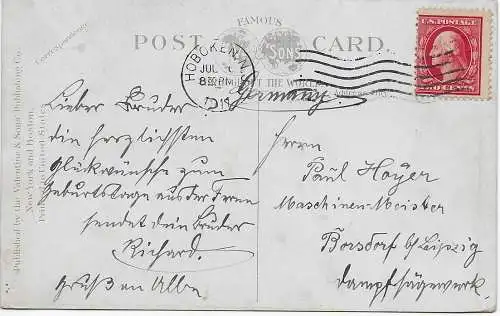 FAMOUS
POST CARD.
SONS
HOBOKEN, N.J.
JUL
8 PM
191
U.S. POSTAGE
TWO CENTS
THE WORLD
Germany.
Correspondence.
Published by the Valentine & Sons' Publishing Co.
New York and Boston
Printed in United States
Lieber Bruder
die herzlichsten
Glückwünsche zum
Geburtstage aus der Ferne
sendet dein Bruder
Richard.
Gruß an Alle
Herrn
Paul Hoyer
Maschinen-Meister
Borsdorf b/Leipzig
Dampfsägewerk.